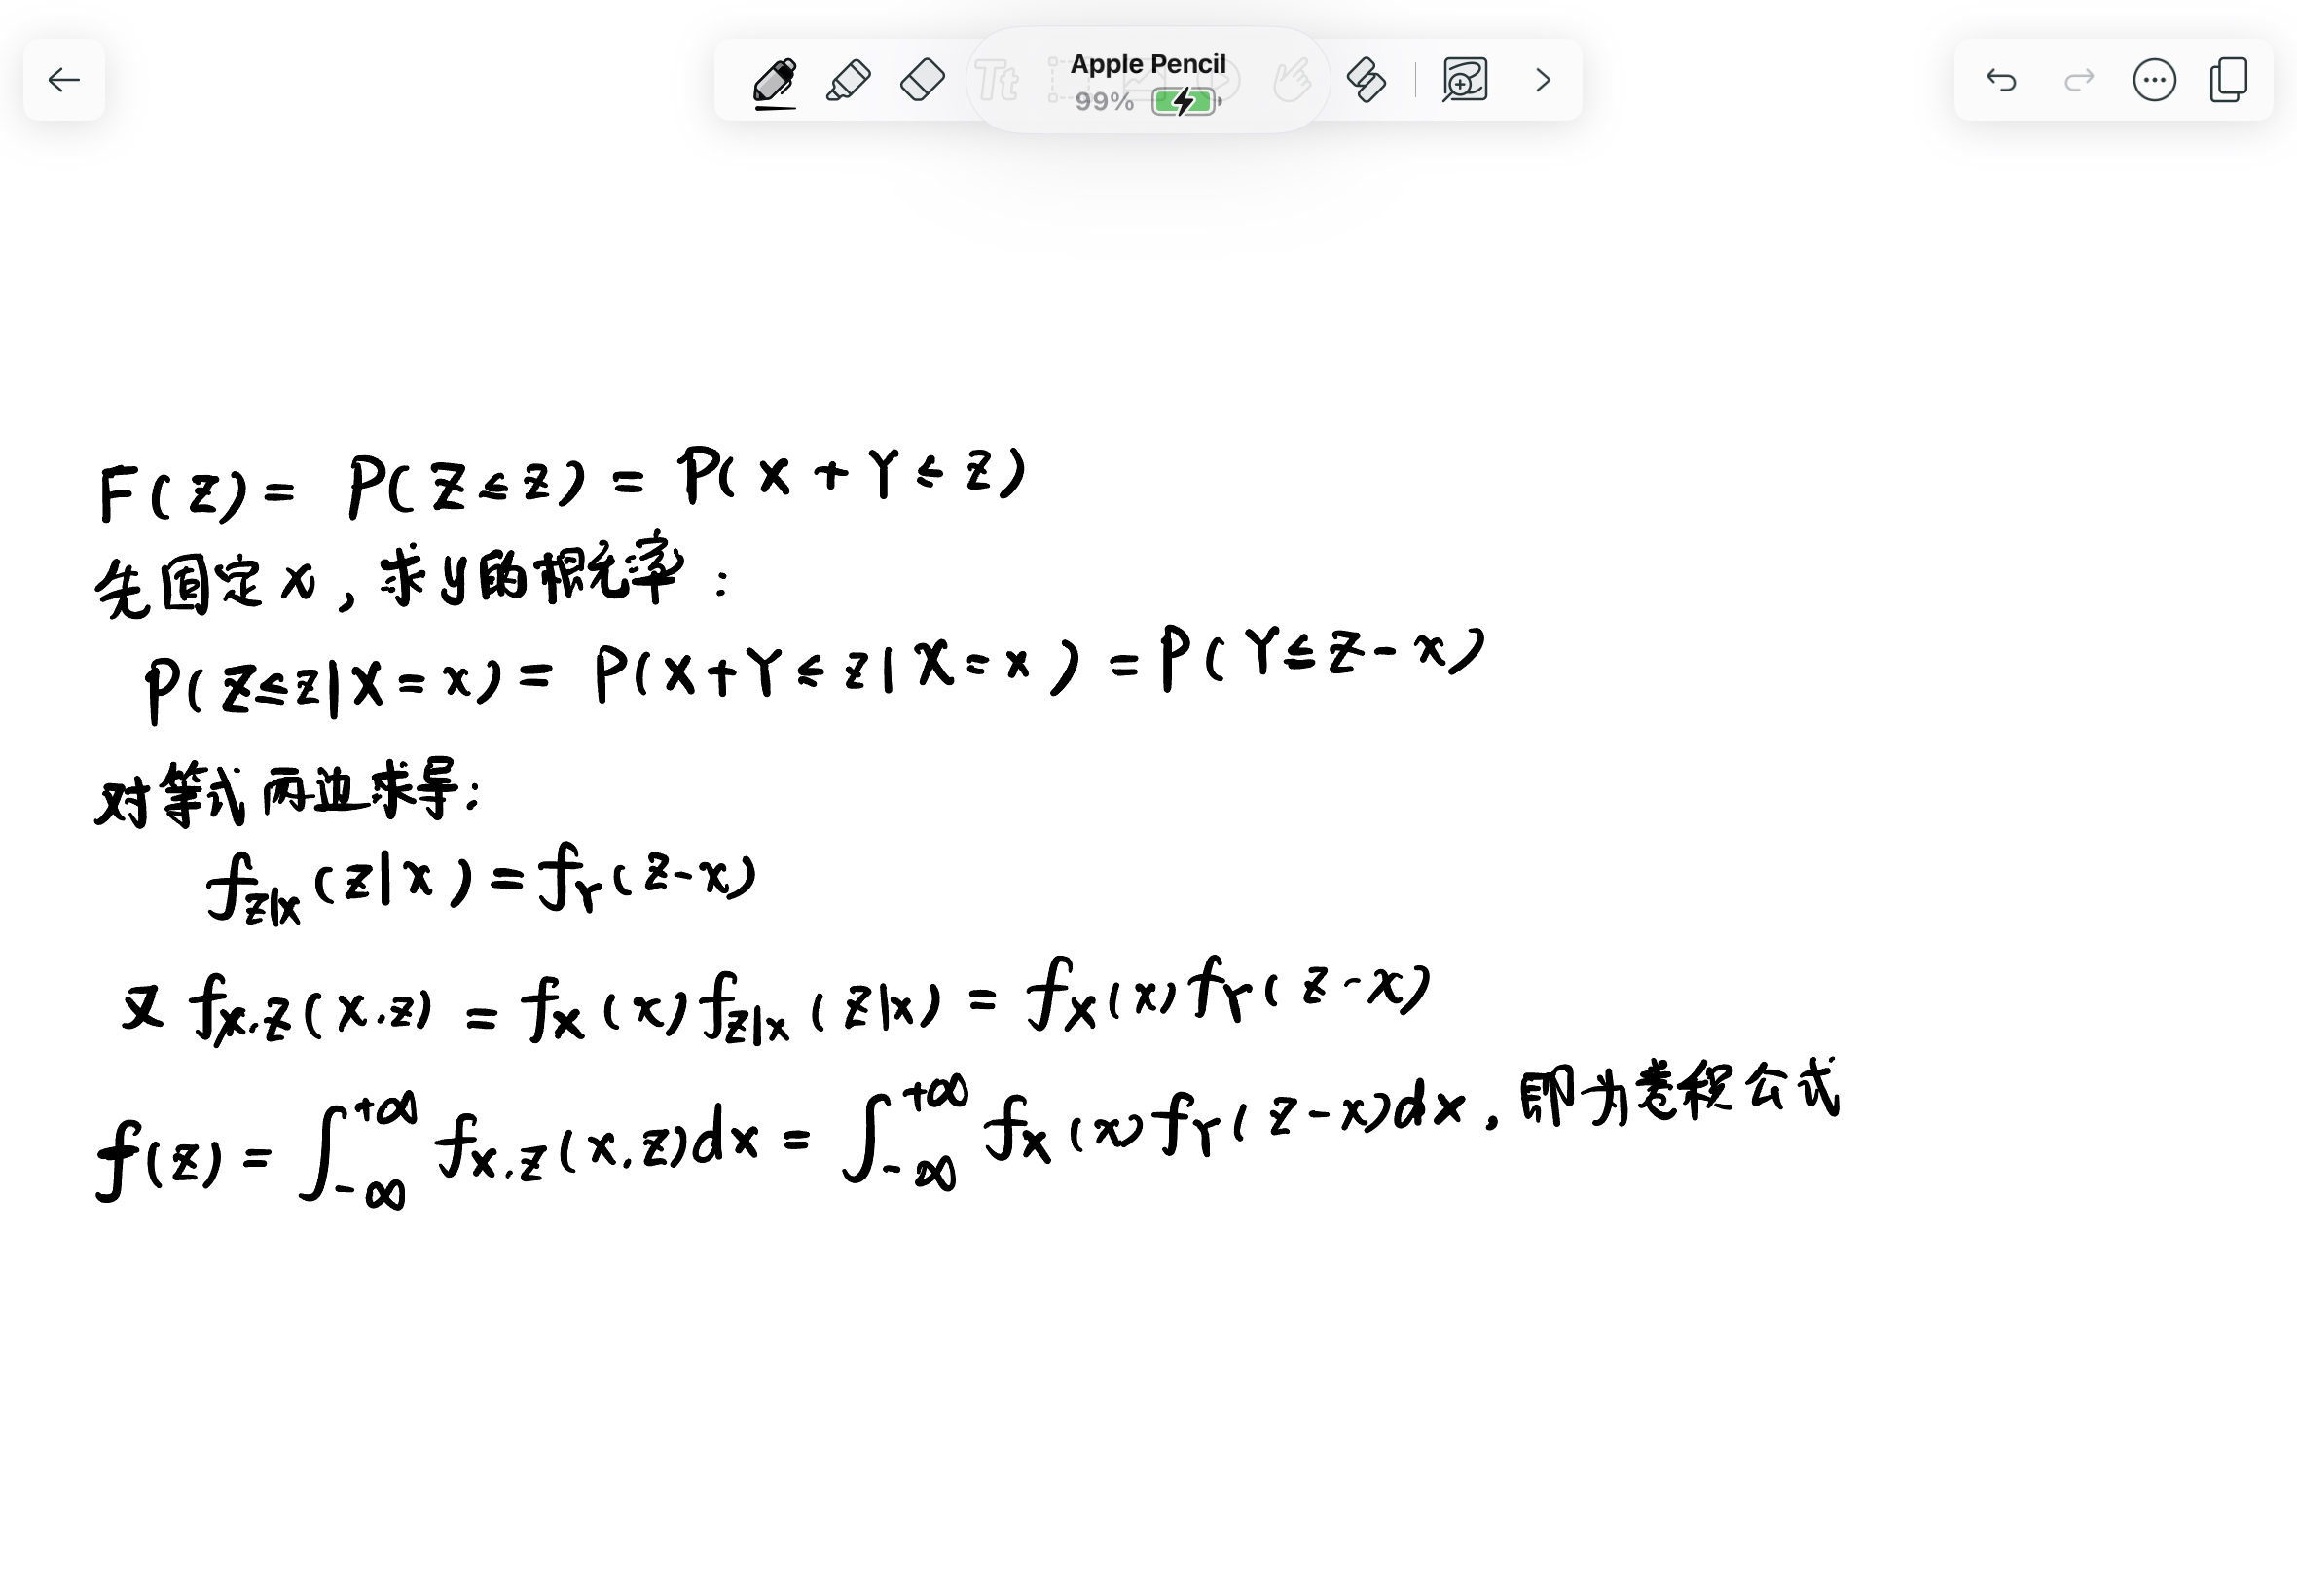 Apple Pencil
99%
F(z) = P(Z≤z) = P(X+Y≤z)
先固定x,求y的概率:
P(Z≤z|X=x) = P(X+Y≤z|X=x) = P(Y≤z-x)
对等式两边求导:
f_{Z|X}(z|x) = f_Y(z-x)
又 f_{X.Z}(x.z) = f_X(x) f_{Z|X}(z|x) = f_X(x) f_Y(z-x)
f(z) = ∫_{-∞}^{+∞} f_{X.Z}(x.z)dx = ∫_{-∞}^{+∞} f_X(x) f_Y(z-x)dx,即为卷积公式